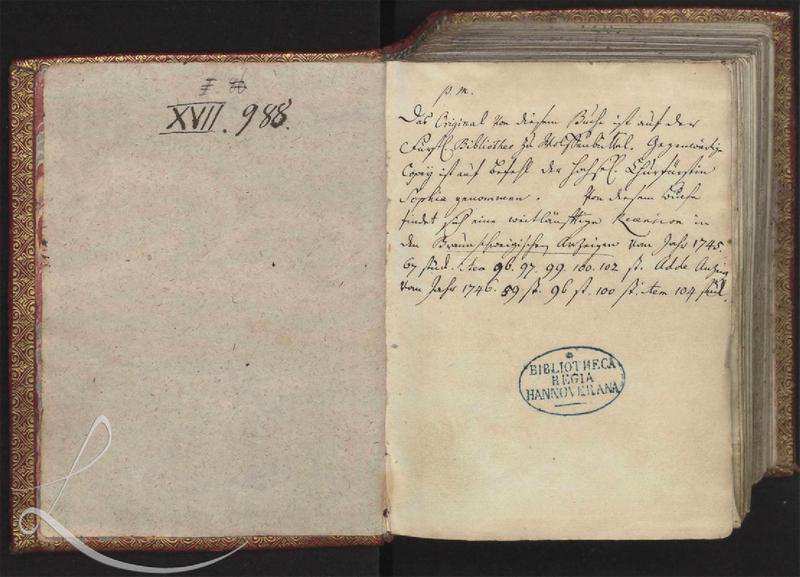 XVII. 988.
p. m.
Das Original von diesem Buche ist auf der
Fürstl. Bibliothec zu Wolffenbüttel. Gegenwärtige
Copey ist auf Befehl der Hochsel. Churfürstin
Sophia genommen. Von diesem Buche
findet sich eine weitläufftige Recension in
den Braunschweigischen Anzeigen vom Jahr 1745
67 stück. item 96. 97. 99. 100. 102 st. Adde Anzeig
vom Jahr 1746. 59 st. 96 st. 100 st. item 104 stück.
BIBLIOTHECA
REGIA
HANNOVERANA